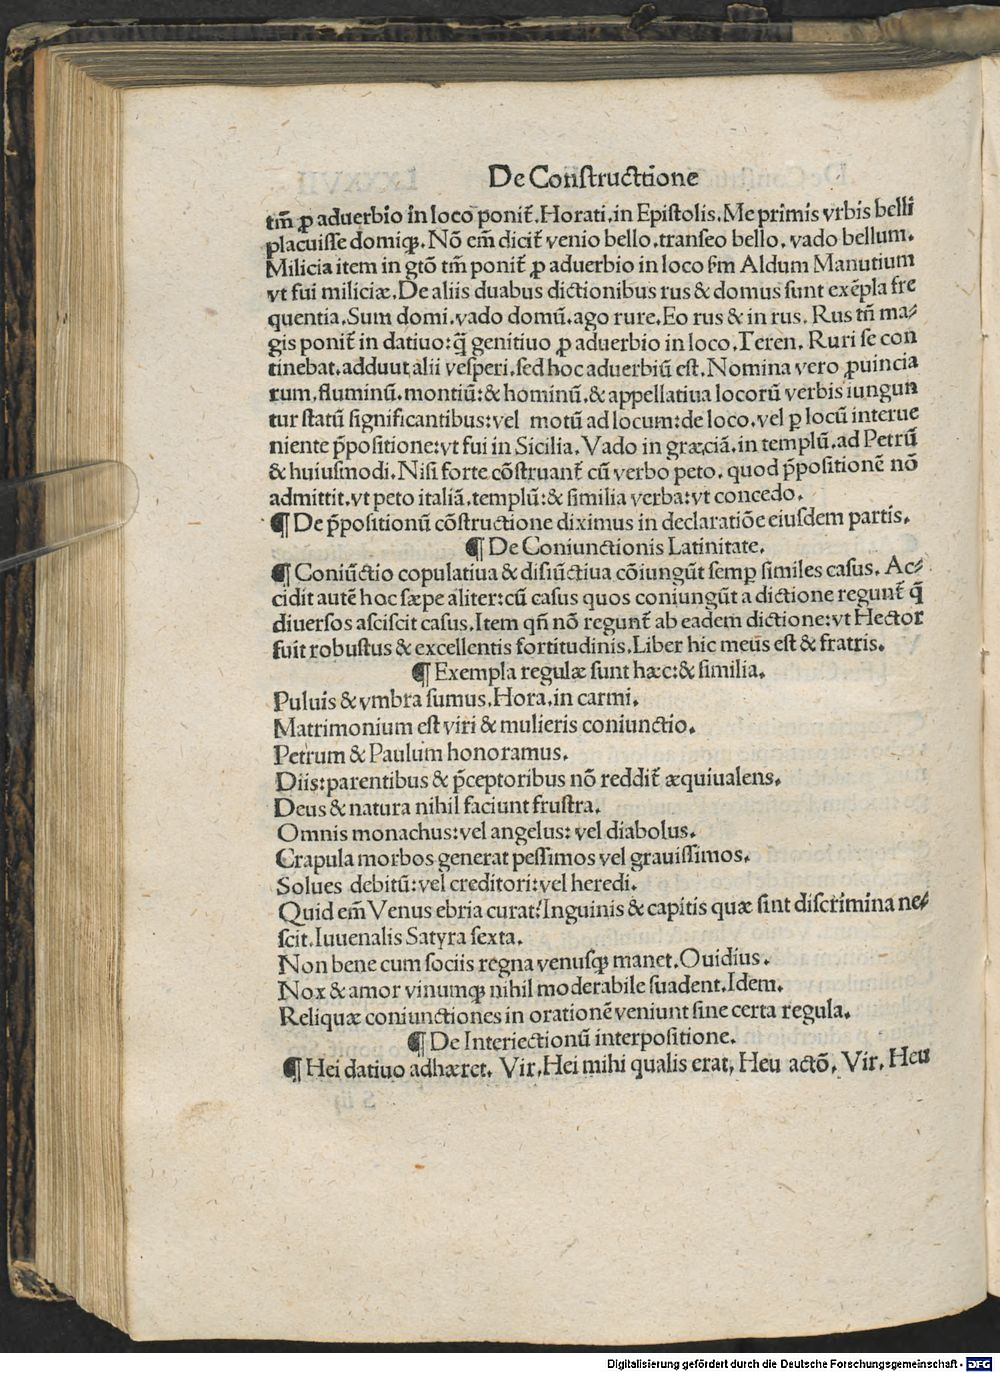 De Constructtione
tm̃ ꝓ aduerbio in loco ponit᷑. Horati. in Epistolis. Me primis vrbis belli
placuisse domiqꝫ. Nō em̄ dicit᷑ venio bello. transeo bello. vado bellum.
Milicia item in gtō tm̄ ponit᷑ ꝓ aduerbio in loco ẜm Aldum Manutium
vt fui miliciæ. De aliis duabus dictionibus rus & domus sunt exēpla fre
quentia. Sum domi. vado domū. ago rure. Eo rus & in rus. Rus tñ ma⸗
gis ponit᷑ in datiuo: q̃ genitiuo ꝓ aduerbio in loco. Teren. Ruri se con
tinebat. adduut alii vesperi. sed hoc aduerbiū est. Nomina vero ꝓuincia
rum. fluminū. montiū: & hominū. & appellatiua locorū verbis iungun
tur statū significantibus: vel motū ad locum: de loco. vel ꝑ locū interue
niente p̄positione: vt fui in Sicilia. Vado in græciā. in templū. ad Petrū
& huiusmodi. Nisi forte cōstruant᷑ cū verbo peto. quod p̄positionē nō
admittit. vt peto italiā. templū: & similia verba: vt concedo.
¶ De p̄positionū cōstructione diximus in declaratiōe eiusdem partis.
¶ De Coniunctionis Latinitate.
¶ Coniūctio copulatiua & disiūctiua cōiungūt semꝑ similes casus. Ac⸗
cidit autē hoc sæpe aliter: cū casus quos coniungūt a dictione regunt᷑ q̃
diuersos asciscit casus. Item qñ nō regunt᷑ ab eadem dictione: vt Hector
fuit robustus & excellentis fortitudinis. Liber hic meus est & fratris.
¶ Exempla regulæ sunt hæc: & similia.
Puluis & vmbra sumus. Hora. in carmi.
Matrimonium est viri & mulieris coniunctio.
Petrum & Paulum honoramus.
Diis: parentibus & p̄ceptoribus nō reddit᷑ æquiualens.
Deus & natura nihil faciunt frustra.
Omnis monachus: vel angelus: vel diabolus.
Crapula morbos generat pessimos vel grauissimos.
Solues debitū: vel creditori: vel heredi.
Quid em̄ Venus ebria curat? Inguinis & capitis quæ sint discrimina ne⸗
scit. Iuuenalis Satyra sexta.
Non bene cum sociis regna venusqꝫ manet. Ouidius.
Nox & amor vinumqꝫ nihil moderabile suadent. Idem.
Reliquæ coniunctiones in orationē veniunt sine certa regula.
¶ De Interiectionū interpositione.
¶ Hei datiuo adhæret. Vir. Hei mihi qualis erat. Heu actō. Vir. Heu
Digitalisierung gefördert durch die Deutsche Forschungsgemeinschaft - DFG